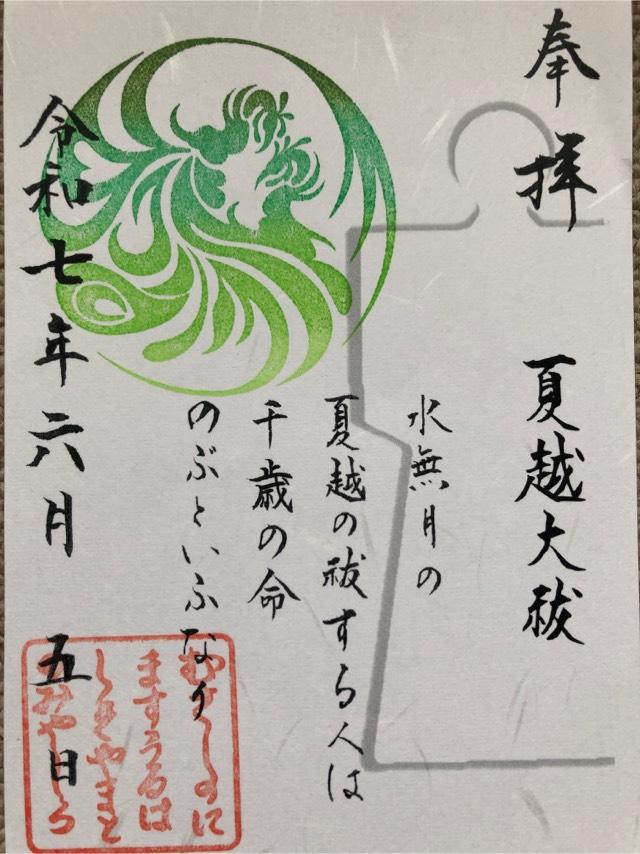 奉拝
夏越大祓
水無月の
夏越の祓する人は
千歳の命
のぶといふなり
令和七年六月五日
ますうるは
しきやまと